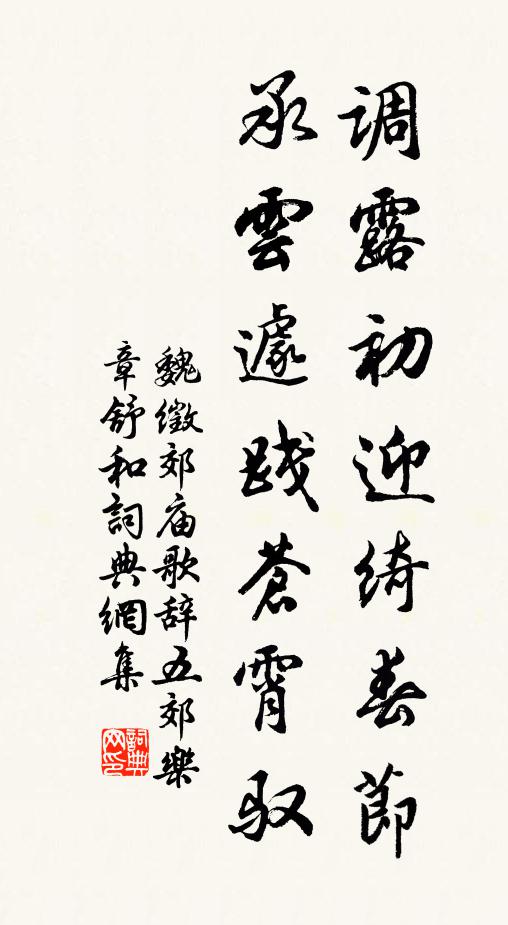 調露初迎綺春節
承雲遽踐蒼霄馭
魏徵郊庙歌辞五郊樂
章舒和詞典網集
詞典
网印